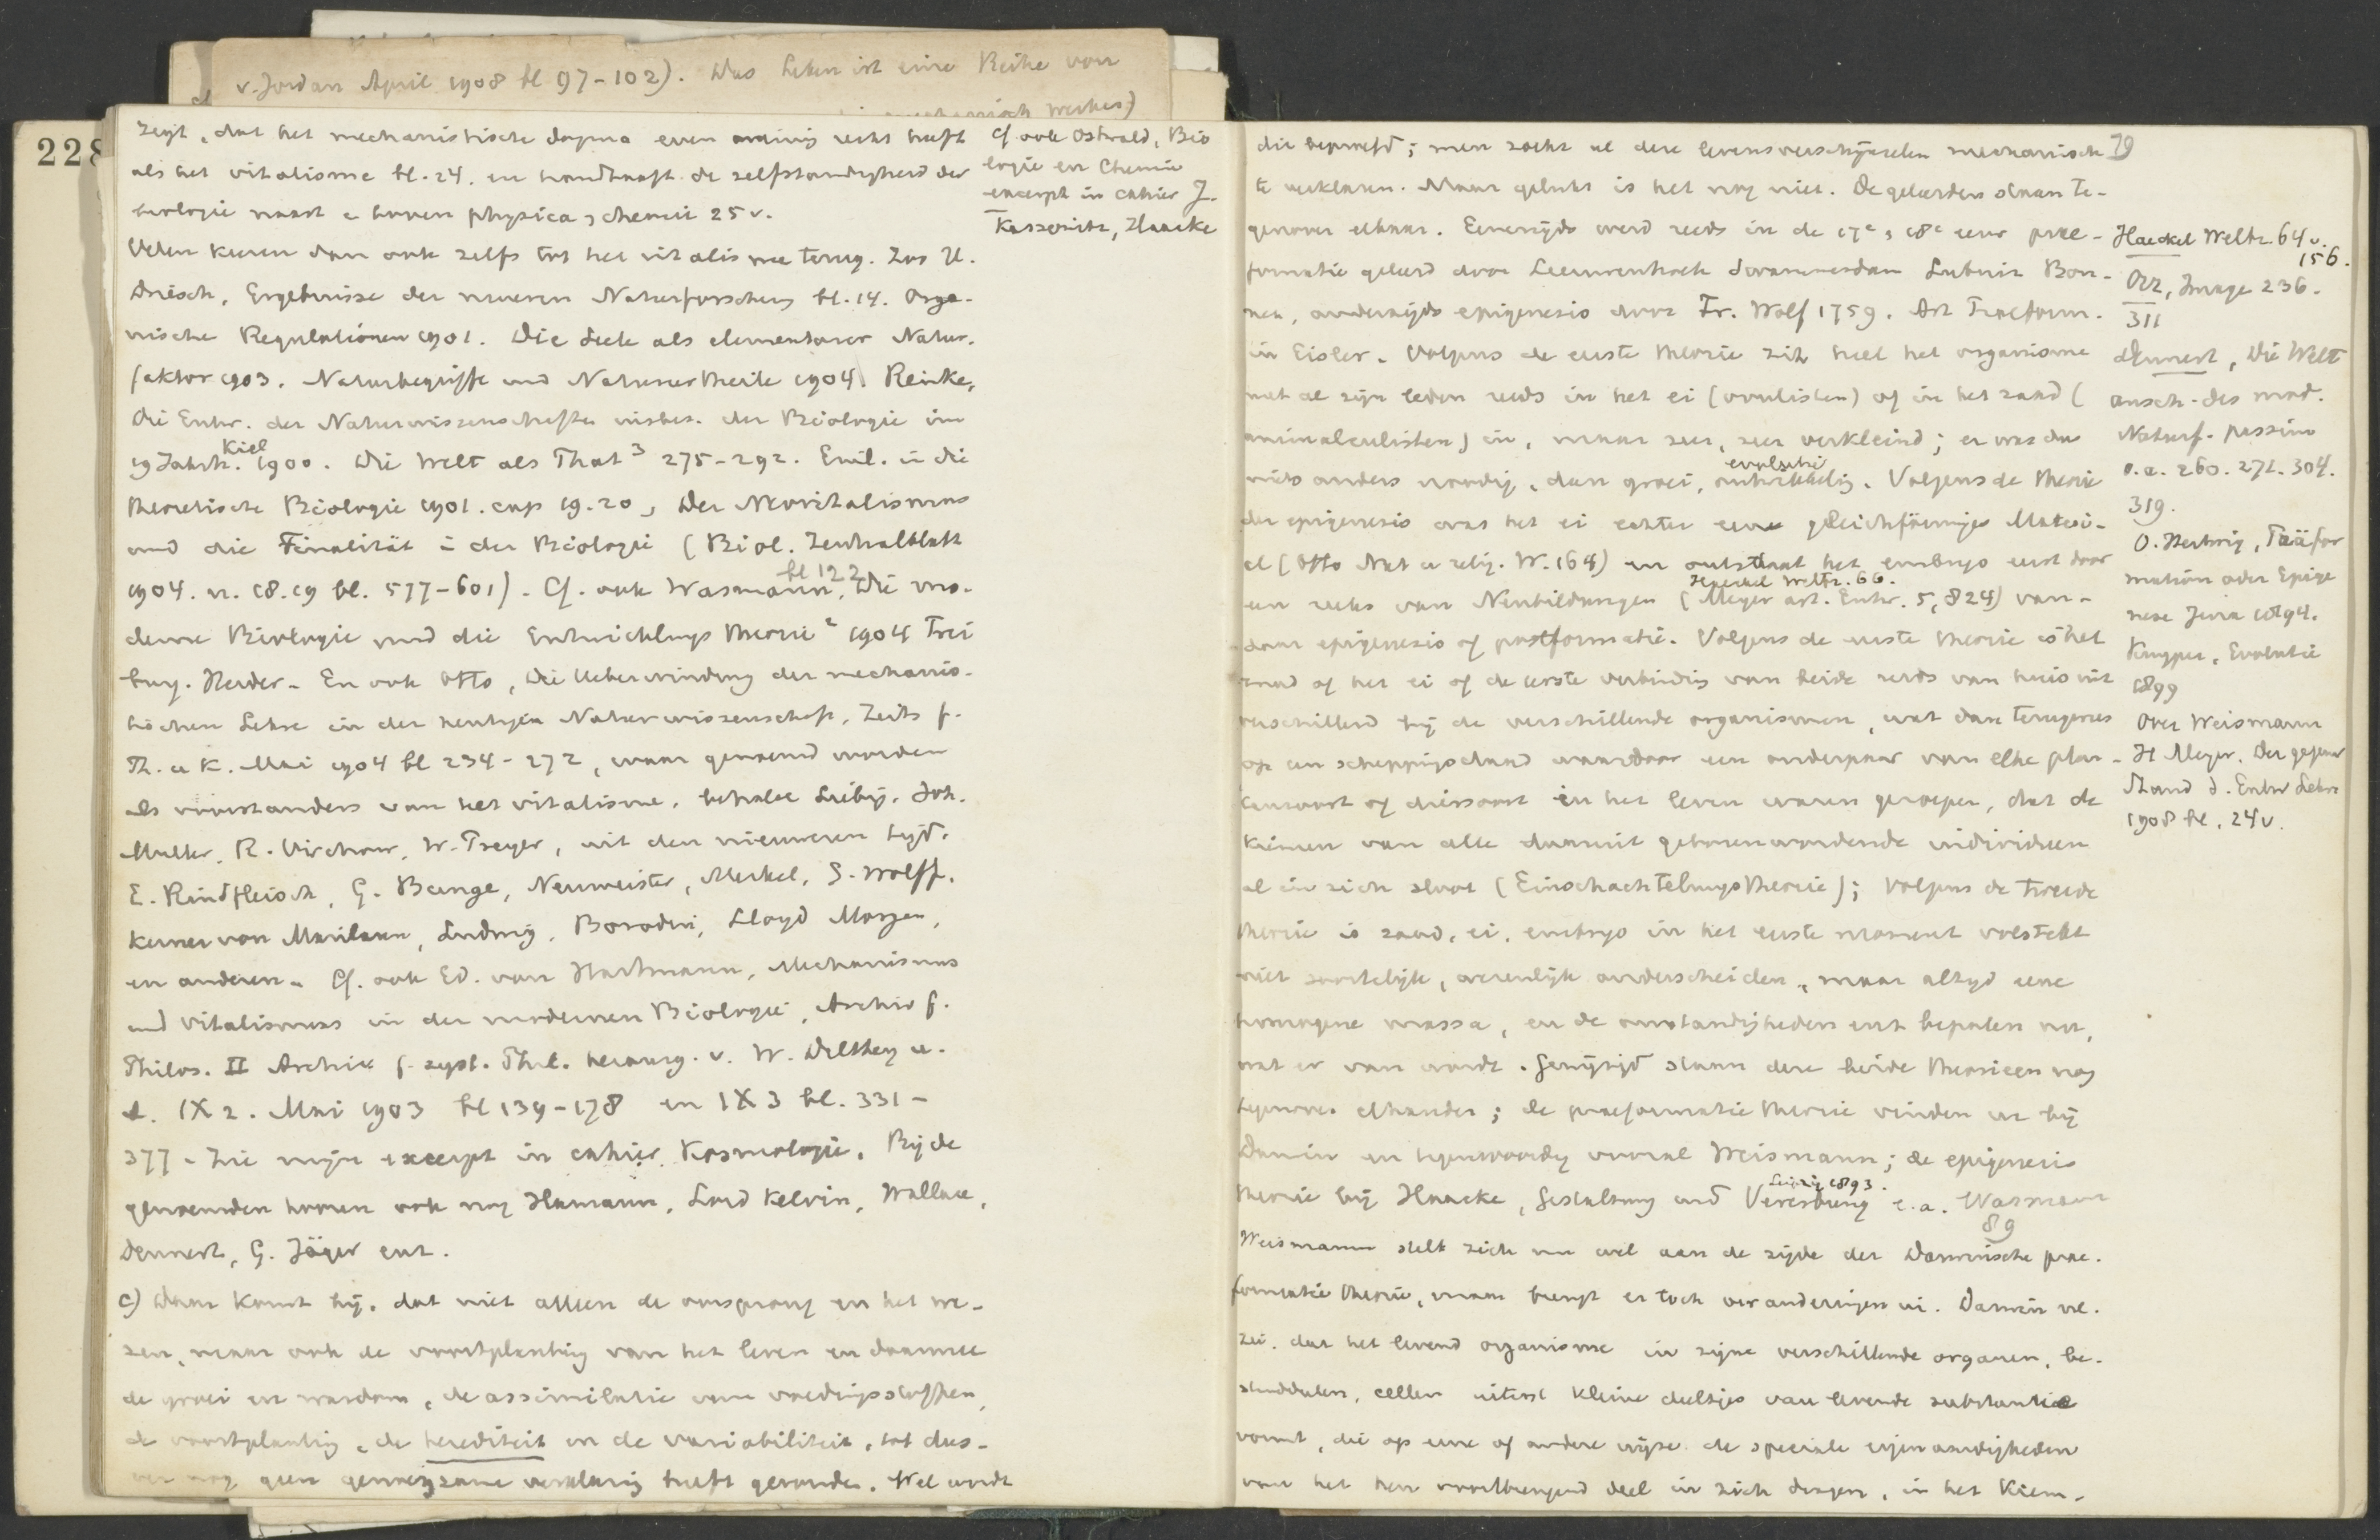 v. Jordan April 1908 bl 97-102). Das Leben ist eine Reihe von
228
zegt, dat het mechanistische dogma even weinig recht heeft
als het vitalisme bl. 24. en handhaaft de zelfstandigheid der
biologie naast en boven physica en chemie 25 v.
Velen keren dan ook zelfs tot het vitalisme terug. Zoo H.
Driesch, Ergebnisse der neueren Naturforschung bl. 14. Orga-
nische Regulationen 1901. Die Seele als elementarer Natur-
faktor 1903. Naturbegriffe und Natururtheile 1904. Reinke,
Die Entw. der Naturwissenschaften insbes. der Biologie im
19 Jahrh. Kiel 1900. Die Welt als That 3 275-292. Einl. in die
theoretische Biologie 1901. cap 19. 20, Der Neovitalismus
und die Finalität in der Biologie (Biol. Zentralblatt
1904. n. 18. 19 bl. 577-601). Cf. ook Wasmann, bl 122 Die mo-
derne Biologie und die Entwicklungstheorie 2 1904 Frei
burg. Herder. En ook Otto, Die Ueberwindung der mechanis-
tischen Lehre in der heutigen Naturwissenschaft, Zeits f.
Th. u K. Mai 1904 bl 234-272, waar genoemd worden
als voorstanders van het vitalisme, behalve Liebig, Joh.
Muller, R. Virchow, W. Preyer, uit den nieuweren tijd.
E. Rindfleisch, G. Bunge, Neumeister, Merkel, G. Wolff,
Kerner von Marilaun, Ludwig, Borodin, Lloyd Morgan,
en anderen. Cf. ook Ed. von Hartmann, Mechanismus
und Vitalismus in der modernen Biologie, Archiv f.
Philos. II Archiv f. syst. Phil. herausg. v. W. Dilthey u.
a. IX 2. Mai 1903 bl 139-178 en IX 3 bl. 331-
377. Zie mijn excerpt in cahier Kosmologie. Bij de
genoemden komen ook nog Hamann, Lord Kelvin, Wallace,
Dennert, G. Jäger enz.
c) Daar komt bij, dat niet alleen de oorsprong en het we-
zen, maar ook de voortplanting van het leven en daarmee
de groei en wasdom, de assimilatie van voedingsstoffen,
de voortplanting, de herediteit en de variabiliteit, tot dus-
ver nog geen genoegzame verklaring heeft gevonden. Wel wordt
Cf ook Ostwald, Bio
logie en Chemie
excerpt in cahier J.
Kassowitz, Haacke
79
die beproefd; men zocht al deze levensverschijnselen mechanisch
te verklaren. Maar gelukt is het nog niet. De geleerden staan te-
genover elkaar. Eenerzijds werd reeds in de 17e en 18e eeuw prae-
formatie geleerd door Leeuwenhoek Swammerdam Leibniz Bon-
net, anderzijds epigenesis door Fr. Wolf 1759. Art Praeform.
in Eisler. Volgens de eerste theorie zit heel het organisme
met al zijn leden reeds in het ei (ovulisten) of in het zaad (
animalculisten) in, maar zeer, zeer verkleind; er was dus
evolutie
niets anders noodig, dan groei, ontwikkeling. Volgens de theorie
der epigenesis was het ei echter een gleichförmiges Materi-
al (Otto Nat u relig. W. 164) en ontstaat het embryo eerst door
Haeckel Weltr. 66.
een reeks van Neubildungen (Meyer art. Entw. 5, 824) van-
daar epigenesis of postformatie. Volgens de eerste theorie is het
zaad of het ei of de eerste verbinding van beide reeds van huis uit
verschillend bij de verschillende organismen, wat dan terugwees
op een scheppingsdaad waardoor een ouderpaar van elke plan-
tensoort of diersoort in het leven waren geroepen, dat de
kiemen van alle daaruit geboren wordende individuen
al in zich sloot (Einschachtelungstheorie); volgens de tweede
theorie is zaad, ei, embryo in het eerste moment volstrekt
niet soortelijk, wezenlijk onderscheiden, maar altijd eene
homogene massa, en de omstandigheden eerst bepalen wat,
wat er van wordt. Gewijzigd staan deze beide theorieen nog
tegenover elkander; de praeformatie theorie vinden we bij
Darwin en tegenwoordig vooral Weismann; de epigenesis
Leipzig 1893.
theorie bij Haacke, Gestaltung und Vererbung e. a. Wasmann
89
Weismann stelt zich nu wel aan de zijde der Darwinsche prae-
formatie theorie, maar brengt er toch veranderingen in. Darwin nl.
zei, dat het levend organisme in zijne verschillende organen, be-
standdelen, cellen uiterst kleine deeltjes van levende substantie
vormt, die op eene of andere wijze de speciale eigenaardigheden
van het hen voortbrengend deel in zich dragen, in het kiem-
Haeckel Weltr. 64 v.
156.
Orr, Image 236.
311
Dennert, Die Welt
ansch. des mod.
Naturf. passim
o.a. 260. 271. 304.
319.
O. Hertwig, Präfor
mation oder Epige
nese Jena 1894.
Kuyper, Evolutie
1899
Over Weismann
H Meyer. Der gegenw
Stand d. Entw Lehre
1908 bl. 24 v.